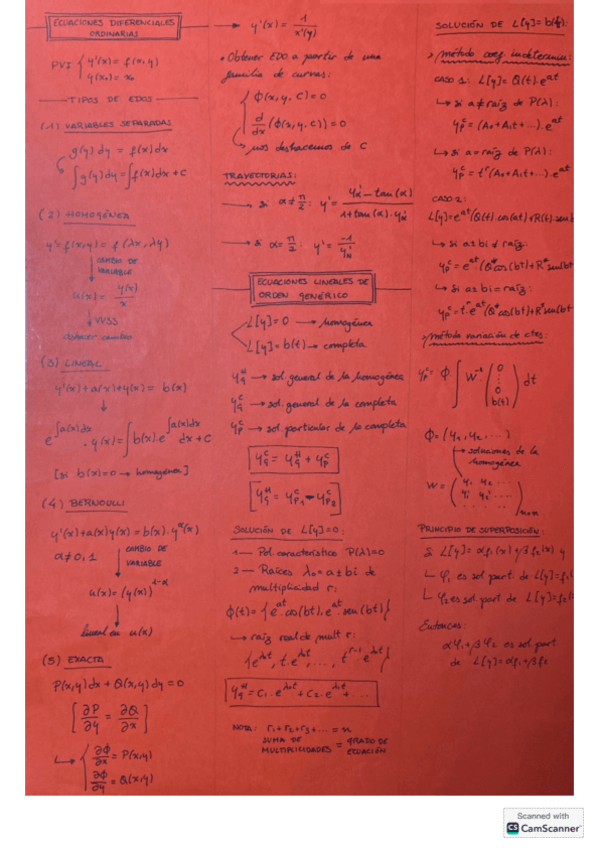 ECUACIONES DIFERENCIALES
ORDINARIAS
PVI { y'(x) = f(x,y)
y(x₀) = x₀
TIPOS DE EDOS
(1) VARIABLES SEPARADAS
g(y) dy = f(x) dx
∫g(y) dy = ∫f(x) dx + C
(2) HOMOGÉNEA
y' = f(x,y) = f(λx, λy)
↓ CAMBIO DE
VARIABLE
u(x) = y(x)/x
↓ VVSS
deshacer cambio
(3) LINEAL
y'(x) + a(x)·y(x) = b(x)
↓
e^∫a(x)dx · y(x) = ∫b(x)·e^∫a(x)dx dx + C
[si b(x) = 0 → homogénea]
(4) BERNOULLI
y'(x) + a(x)y(x) = b(x)·y^α(x)
α ≠ 0, 1
↓ CAMBIO DE
VARIABLE
u(x) = (y(x))^1-α
↓
lineal en u(x)
(5) EXACTA
P(x,y) dx + Q(x,y) dy = 0
[∂P/∂y = ∂Q/∂x]
↳ { ∂Φ/∂x = P(x,y)
∂Φ/∂y = Q(x,y)
→ y'(x) = 1/x'(y)
• Obtener EDO a partir de una
familia de curvas:
{ Φ(x, y, C) = 0
d/dx (Φ(x, y, C)) = 0
↳ nos deshacemos de C
TRAYECTORIAS:
→ si α ≠ π/2: y' = (y'N − tan(α))/(1 + tan(α)·y'N)
→ si α = π/2: y' = −1/y'N
ECUACIONES LINEALES DE
ORDEN GENÉRICO
L[y] = 0 → homogénea
L[y] = b(t) → completa
y_g^H → sol. general de la homogénea
y_g^C → sol. general de la completa
y_p^C → sol. particular de la completa
y_g^C = y_g^H + y_p^C
[y_g^H = y_p1^C − y_p2^C]
SOLUCIÓN DE L[y] = 0:
1 — Pol. característico P(λ) = 0
2 — Raíces λ₀ = a ± bi de
multiplicidad r:
Φ(t) = {e^at·cos(bt), e^at·sen(bt)}
↳ raíz real de mult r:
{e^λ₀t, t·e^λ₀t, ..., t^r-1·e^λ₀t}
y_g^H = C₁·e^λ₀t + C₂·e^λ₁t + ...
NOTA: r₁ + r₂ + r₃ + ... = n
SUMA DE
MULTIPLICIDADES = GRADO DE
ECUACIÓN
SOLUCIÓN DE L[y] = b(t):
> método coef. indetermin.:
CASO 1: L[y] = Q(t)·e^at
↳ si a ≠ raíz de P(λ):
y_p^C = (A₀ + A₁t + ...)·e^at
↳ si a = raíz de P(λ):
y_p^C = t^r(A₀ + A₁t + ...)·e^at
CASO 2:
L[y] = e^at(Q(t)·cos(at) + R(t)·senb
↳ si a ± bi ≠ raíz:
y_p^C = e^at(Q*cos(bt) + R*sen(bt
↳ si a ± bi = raíz:
y_p^C = t^r·e^at(Q*cos(bt) + R*sen(bt
> método variación de ctes:
y_p^C = Φ ∫ W⁻¹ (0 ⋮ 0 b(t)) dt
Φ = (y₁, y₂, ...)
↳ soluciones de la
homogénea
W = (y₁ y₂ ...
y₁' y₂' ...
... ..)n×n
PRINCIPIO DE SUPERPOSICIÓN:
Si L[y] = αf₁(x) + βf₂(x) y
↳ φ₁ es sol part. de L[y] = f₁(
↳ φ₂ es sol part de L[y] = f₂(
Entonces:
αφ₁ + βφ₂ es sol part.
de L[y] = αf₁ + βf₂
Scanned with
CS CamScanner